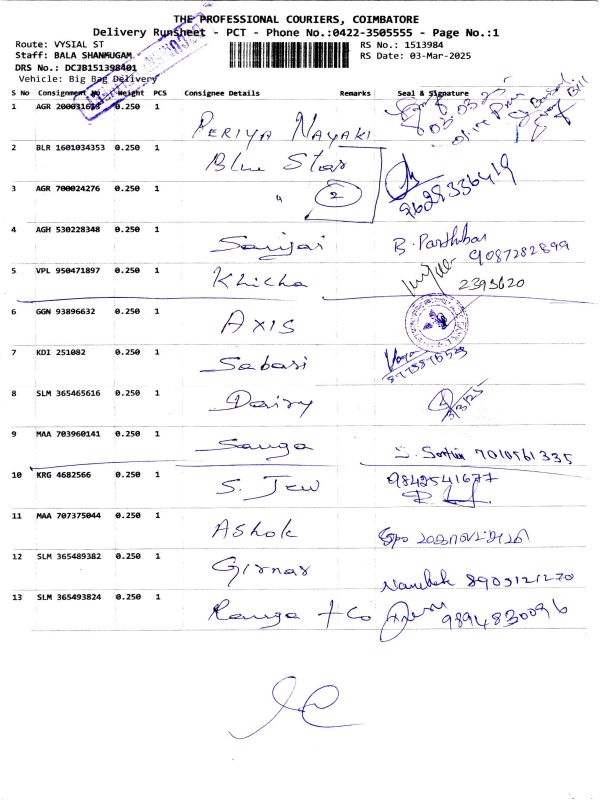 THE PROFESSIONAL COURIERS, COIMBATORE
Delivery Runsheet - PCT - Phone No.:0422-3505555 - Page No.:1
Route: VYSIAL ST RS No.: 1513984
Staff: BALA SHANMUGAM RS Date: 03-Mar-2025
DRS No.: DCJB151398401
Vehicle: Big Bag Delivery
S No Consignment No Weight PCS Consignee Details Remarks Seal & Signature
1 AGR 0.250 1 PERIYA NAYAKI 03.03.25
2 BLR 1601034353 0.250 1 Blue Star
3 AGR 700024276 0.250 1 " 2 9629336419
4 AGH 530228348 0.250 1 Sanjai B. Parthiban 9087282899
5 VPL 950471897 0.250 1 Khicha 2393620
6 GGN 93896632 0.250 1 AXIS
7 KDI 251082 0.250 1 Sabari
8 SLM 365465616 0.250 1 Dairy 3/3/25
9 MAA 703960141 0.250 1 Sanga 7010561335
10 KRG 4682566 0.250 1 S. Jew 9842541677
11 MAA 707375044 0.250 1 Ashok
12 SLM 365489382 0.250 1 Girnar 8903121270
13 SLM 365493824 0.250 1 Ranga + Co 9894830096